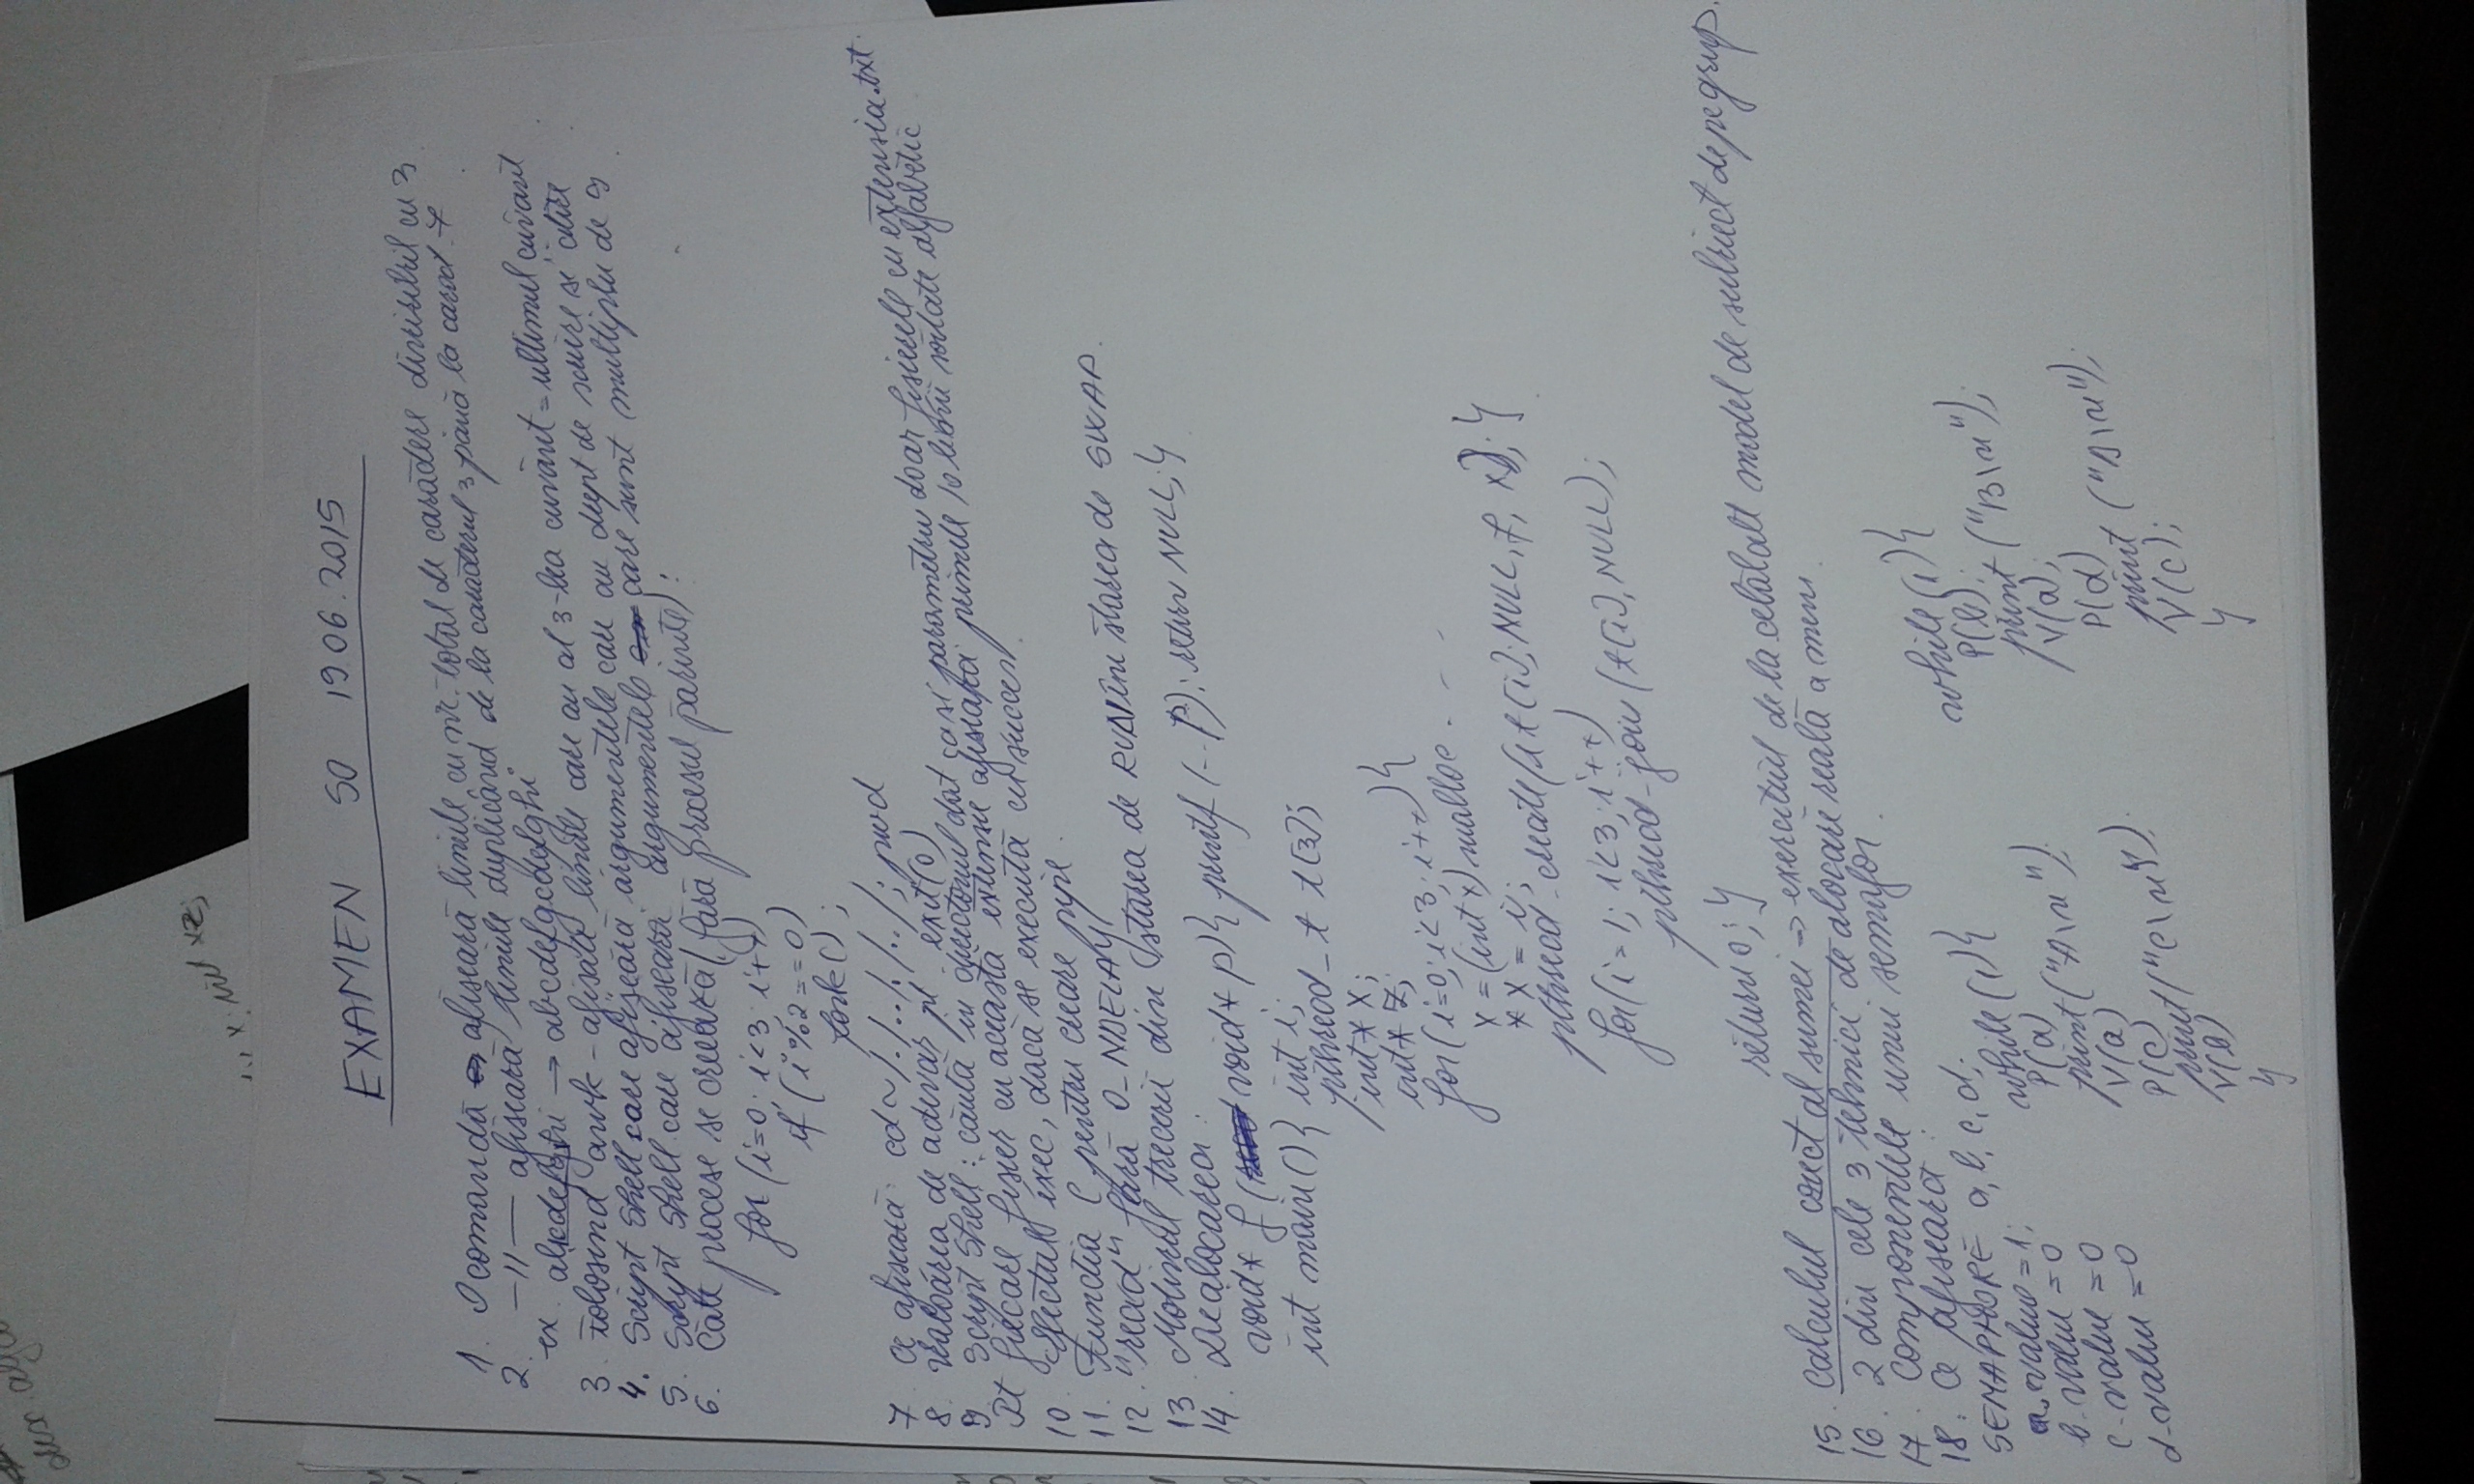 x; int *z;
EXAMEN SO 19.06.2015
1. O comandă afișează liniile cu nr. total de caractere divizibil cu 3
2. —II— afișează liniile duplicând de la caracterul 3 până la caract. 7
ex. abcdefghi → abcdefgcdefghi
3. Folosind awk - afișați liniile care au al 3-lea cuvânt = ultimul cuvânt
4. Script Shell care afișeără argumentele care au drept de scriere și citire
5. Script Shell care afișează argumentele care sunt multiplu de 9
6. Câte procese se creează (fără procesul părinte):
for (i=0; i<3; i++)
if (i%2==0)
fork();
7. Ce afișează: cd ~/./../../; pwd
8. Valoarea de adevăr pt. exit(0)
9. Script Shell: caută în directorul dat ca și parametru doar fișierele cu extensia .txt.
Pt fiecare fișier cu această extensie afișează primele 10 linii sortate alfabetic
10. Efectul exec, dacă se execută cu succes.
11. Functia C pentru creare pipe.
12. "read" fără O_NDELAY
13. Motivul trecerii din starea de RUN în starea de SWAP.
14. Dealocarea:
void* f (void* p){ printf (-- p); return NULL; }
int main(){ int i;
pthread_t t[3];
int* x;
int* z;
for(i=0; i<3; i++){
x = (int*) malloc. - -
*x = i;
pthread_create(&t[i]; NULL, f, x); }
for(i=1; i<3; i++)
pthread_join (t[i], NULL);
return 0; }
15. Calculul corect al sumei → exercițiul de la celălalt model de subiect de pe grup.
16. 2 din cele 3 tehnici de alocare reală a mem.
17. Componentele unui semafor.
18. Ce afișează:
SEMAPHORE a, b, c, d;
a.value = 1;
b.value = 0
c.value = 0
d.value = 0
while (1){
P(a)
print("A\n");
V(a)
P(c)
print("C\n");
V(b)
}
while (1){
P(b);
print ("B\n");
V(a);
P(d)
print ("D\n");
V(c);
}